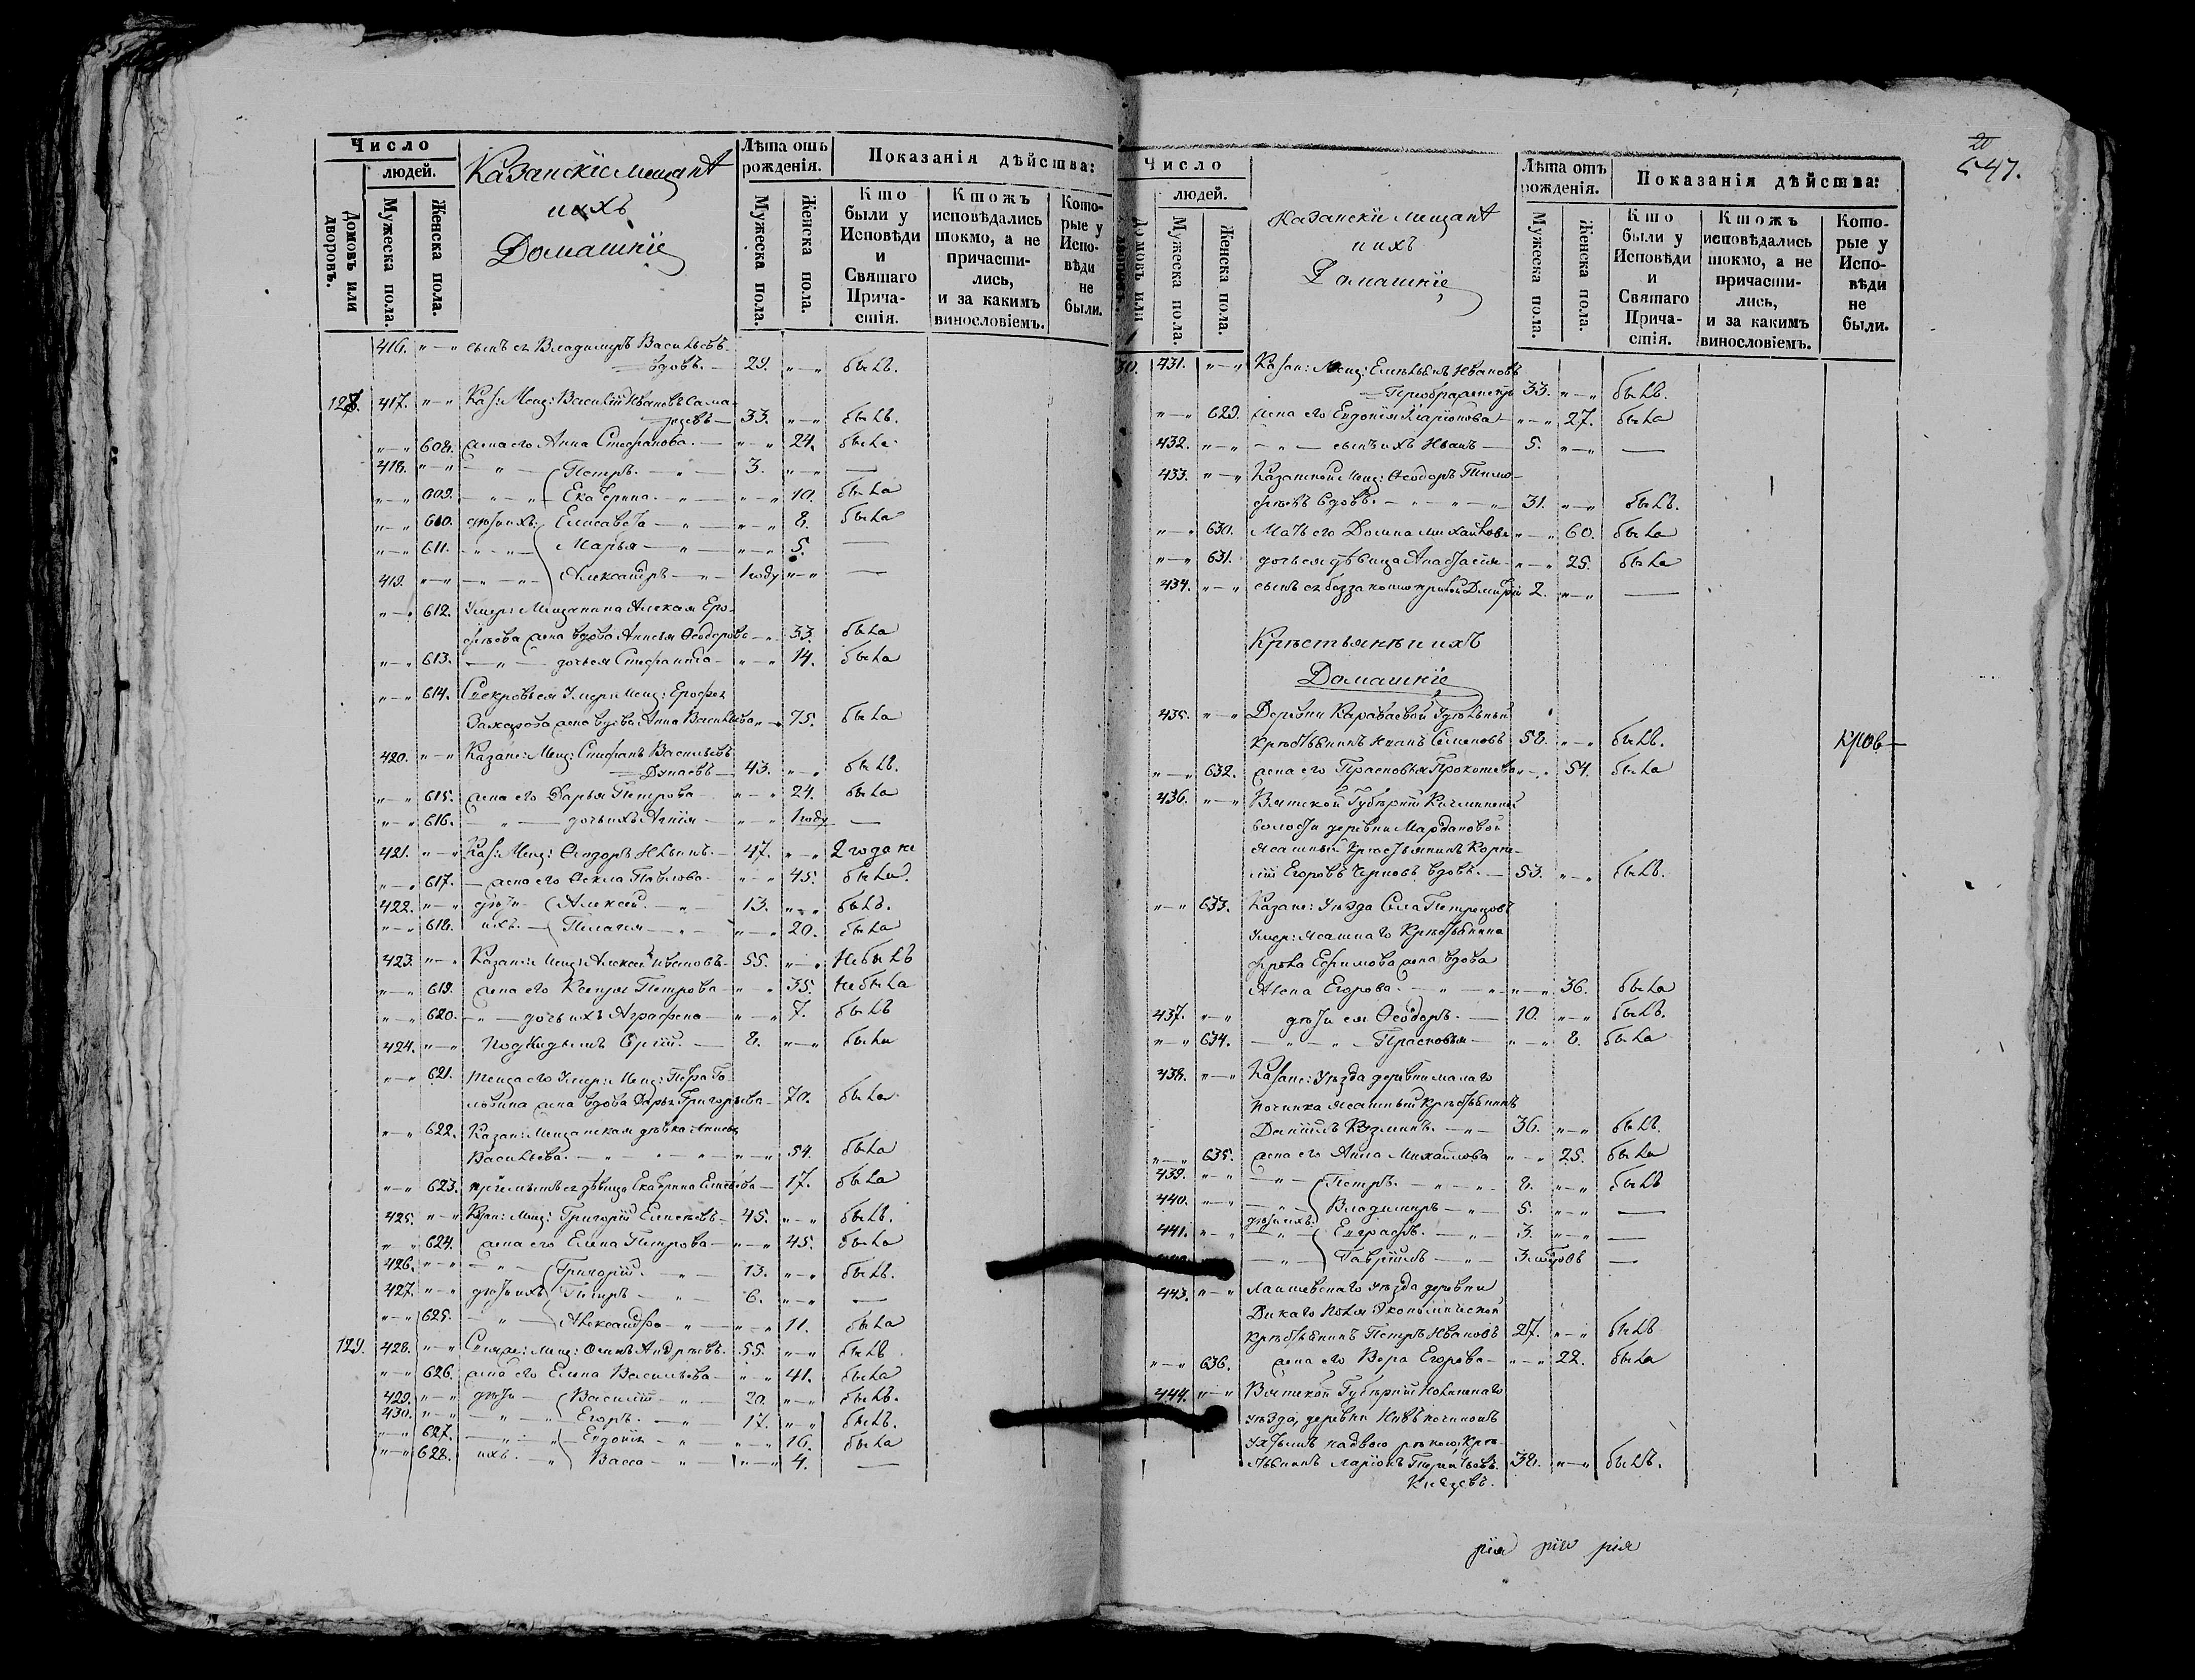 Число
людей.
Домовъ или дворовъ.
Мужеска пола.
Женска пола.
Казанскіе мещанѣ
и ихъ
Домашніе
Лѣта отъ рожденія.
Мужеска пола.
Женска пола.
Показанія дѣйства:
Кто были у Исповѣди и Святаго Причастія.
Ктожъ исповѣдались токмо, а не причастились, и за какимъ винословіемъ.
Которые у Исповѣди не были.
416. „—„ сынъ ея Владимиръ Васильевъ
вдовъ. — 29. „—„ былъ.
128. 417. „—„ Каз: Мещ: Василій Ивановъ
33. „—„ былъ.
„—„ 608. жена его Анна Стефанова. — „—„ 24. была
418. „—„ — „ — Петръ. — „ — 3. „—„ —
„—„ 609. — „ — „ Екатерина. — „ — „—„ 10. была
„—„ 610. дѣти ихъ Елисавета — „ — „—„ 8. была
„—„ 611. — „ — „ Марья — „ — „—„ 5. —
419. „—„ — „ — „ Александръ — „ — 1 году „—„ —
„—„ 612. Умер: Мещанина Алексея Еро-
фѣева жена вдова Анисья Ѳеодорова „ 33. была
„—„ 613. — „ — дочь ея Стефанида — „—„ 14. была
„—„ 614. Свекровь ея Умер: Мещ: Ерофея
Захарова жена вдова Анна Васильева „—„ 75. была
420. „—„ Казанс: Мещ: Стефанъ Васильевъ
Дунаевъ — 43. „—„ былъ.
„—„ 615. жена его Дарья Петрова — „—„ 24. была
„—„ 616. — „ — дочь ихъ Агнія — „—„ 1 году —
421. „—„ Каз: Мещ: Ѳеодоръ Ильинъ. — 47. „—„ 2 года не
„—„ 617. — жена его Ѳекла Павлова. „—„ 45. были.
422. „—„ дѣти — Алексей. — „ 13. „—„ былъ.
„—„ 618. ихъ. — Пелагея — „ — „—„ 20. была
423. „—„ Казанс: Мещ: Алексей Ивановъ. 55. „—„ Небылъ
„—„ 619. жена его Ксенія Петрова — „—„ 35. Небыла
„—„ 620. — „ — дочь ихъ Аграфена „—„ 7. былъ
424. „—„ подкидышъ Сергій. — 8. „—„ были
„—„ 621. теща его Умер: Мещ: Петра Го-
ловина жена вдова Дарья Григорьева — 70. была
„—„ 622. Казан: Мещанская дѣвка Анисья
Васильева. — „ — „ — „—„ 54. была
„—„ 623. пріемышъ ея дѣвица Екатерина — 17. была
425. „—„ Казан: Мещ: Григорій Елисѣевъ — 45. „—„ былъ.
„—„ 624. жена его Елена Петрова — „—„ 45. была
426. „—„ — „ — Григорій. — „ — 13. „—„ былъ.
427. „—„ дѣти ихъ Петръ — „ — 6. „—„ —
„—„ 625. — „ — Александра — „ — „—„ 11. была
129. 428. „—„ Мещ: Осипъ Андрѣевъ. 55. „—„ былъ.
„—„ 626. жена его Елена Васильева — „—„ 41. была
429. „—„ дѣти — Василій — „ — 20. „—„ былъ.
430. „—„ — „ — „ Егоръ. — „ 17. „—„ былъ.
„—„ 627. — „ — „ Евдокія — „ — „—„ 16. была
„—„ 628. ихъ. — „ Васса — „ — „—„ 4. —
20
647.
Число
людей.
Домовъ или дворовъ.
Мужеска пола.
Женска пола.
Казанскіе мещанѣ
и ихъ
Домашніе
Лѣта отъ рожденія.
Мужеска пола.
Женска пола.
Показанія дѣйства:
Кто были у Исповѣди и Святаго Причастія.
Ктожъ исповѣдались токмо, а не причастились, и за какимъ винословіемъ.
Которые у Исповѣди не были.
30. 431. „—„ Казан: Мещ: Емельянъ Ивановъ
Преображенскій 33. „—„ былъ.
„—„ 629. жена его Евдокія Иларіонова — „—„ 27. была
432. „—„ — „ — сынъ ихъ Иванъ — 5. „—„ —
433. „—„ Казанской Мещ: Ѳеодоръ Тимо-
фѣевъ вдовъ. — „ — „ — „ 31. „—„ былъ.
„—„ 630. Мать его Домна Михайлова „—„ 60. была
„—„ 631. дочь ея дѣвица Анастасія — „—„ 25. была
434. „—„ сынъ ея Дмитрій 2. „—„ —
Крѣстьянѣ и ихъ
Домашніе
435. „—„ Деревни Караваевой Удѣльный
Крѣстьянинъ Иванъ Семеновъ 58. „—„ былъ. кров—
„—„ 632. жена его Прасковья Прокопьева „—„ 54. была
436. „—„ Вятской Губѣрніи
волости деревни Мардановой
Ясашный Крѣстьянинъ Корни-
лій Егоровъ Черновъ вдовъ. — 53. „—„ былъ.
„—„ 633. Казанс: Уѣзда Села
Умер: Ясашнаго Крѣстьянина
Ефимова жена вдова
Алена Егорова. — „ — „ „—„ 36. была
437. „—„ дѣти ея Ѳеодоръ. — 10. „—„ былъ.
„—„ 634. — „ — „ — Прасковья — „—„ 8. была
438. „—„ Казанс: Уѣзда деревни малаго
Починка Ясашный Крѣстьянинъ
Даніилъ Кузминъ. — „ — 36. „—„ былъ.
„—„ 635. жена его Анна Михайлова „—„ 25. была
439. „—„ — „ — Петръ. — „ — „ 8. „—„ былъ
440. „—„ — „ — Владимиръ — „ 5. „—„ —
441. „—„ дѣти ихъ Евграфъ. — „ — 3. „—„ —
— „ — Гавріилъ — „ — 3 —
443. „—„ Лаишевскаго Уѣзда деревни
Дикаго Поля Экономической
Крѣстьянинъ Петръ Ивановъ 27. „—„ былъ
„—„ 636. жена его Вера Егорова — „—„ 22. была
444. „—„ Вятской Губѣрніи
Уѣзда, деревни
38. „—„ былъ.
рія рія рія